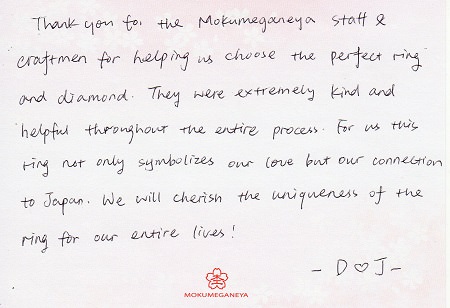 Thank you for the Mokumeganeya staff &
craftmen for helping us choose the perfect ring
and diamond. They were extremely kind and
helpful throughout the entire process. For us this
ring not only symbolizes our love but our connection
to Japan. We will cherish the uniqueness of the
ring for our entire lives!
- D ♡ J -
MOKUMEGANEYA